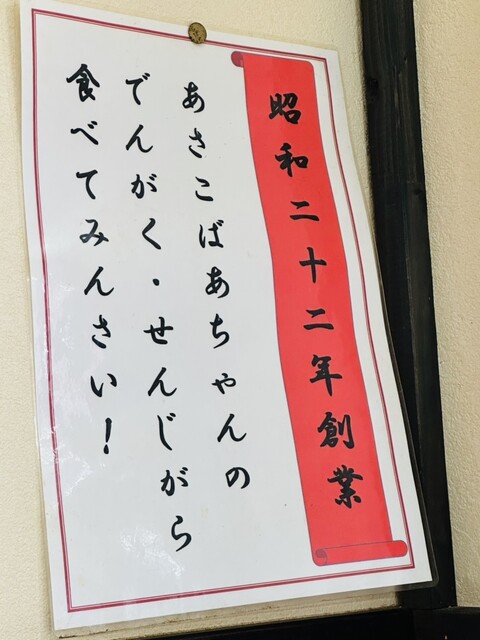 昭和二十二年創業
あさこばあちゃんの
でんがく・せんじがら
食べてみんさい!